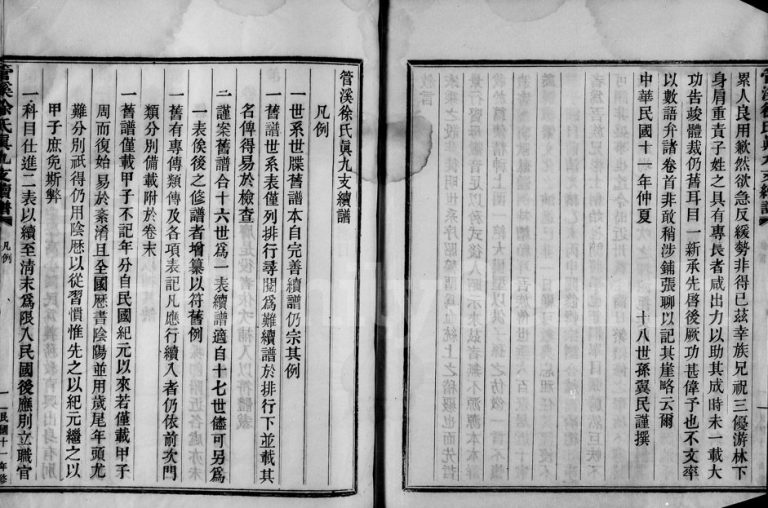 累人良用歉然欲急反緩勢非得已茲幸族兄祝三優游林下
身肩重責子姓之具有專長者咸出力以助其成時未一載大
功告竣體裁仍舊耳目一新承先啓後厥功甚偉予也不文率
以數語弁諸卷首非敢稍涉鋪張聊以記其崖略云爾
中華民國十一年仲夏
十八世孫冀民謹撰
管溪徐氏眞九支續譜
凡例
一世系世牒舊譜本自完善續譜仍宗其例
一舊譜世系表僅列排行尋閱爲難續譜於排行下並載其
名傳得易於檢查
二謹案舊譜合十六世爲一表續譜適自十七世儘可另爲
一表俟後之修譜者增纂以符舊例
一舊有專傳類傳及各項表記凡應行續入者仍依前次門
類分別備載附於卷末
一舊譜僅載甲子不記年分自民國紀元以來若僅載甲子
周而復始易於紊淆且全國歷書陰陽並用歲尾年頭尤
難分別祇得仍用陰歷以從習慣惟先之以紀元繼之以
甲子庶免斯弊
一科目仕進二表以續至淸末爲限入民國後應別立職官
管溪徐氏眞九支續譜
凡例
一
民國十一年修